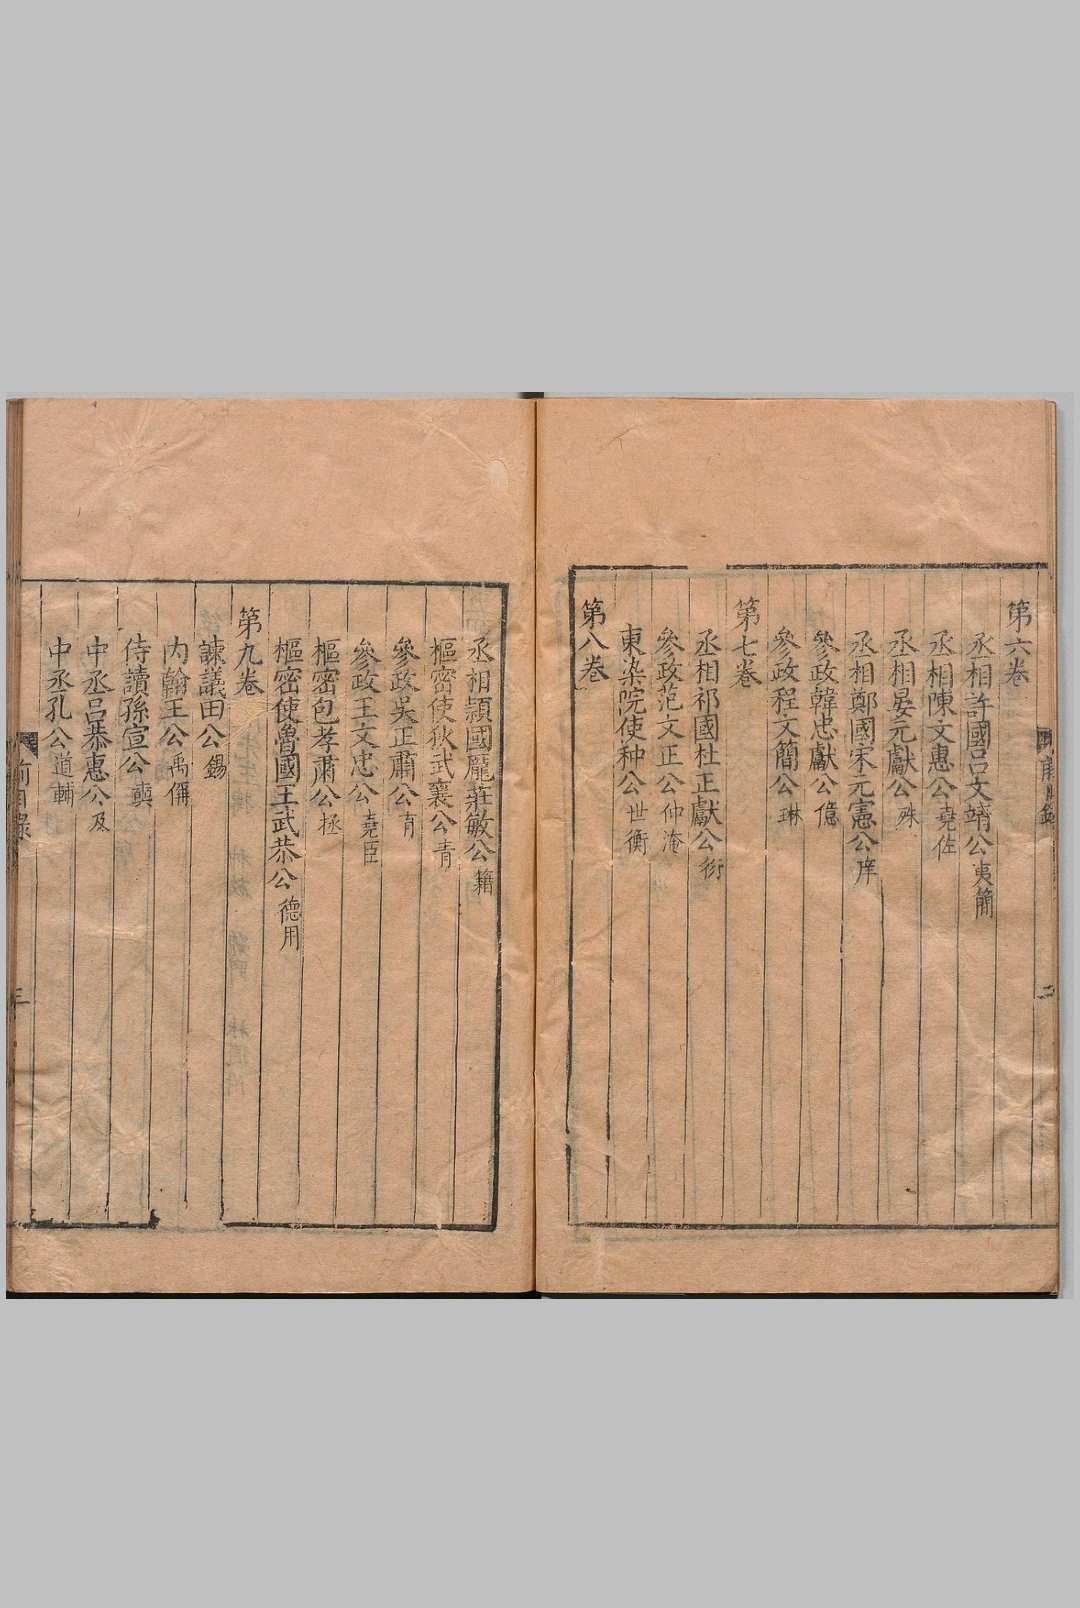 第六卷
丞相許國呂文靖公夷簡
丞相陳文惠公堯佐
丞相晏元獻公殊
丞相鄭國宋元憲公庠
參政韓忠獻公億
參政程文簡公琳
第七卷
丞相祁國杜正獻公衍
參政范文正公仲淹
東染院使种公世衡
第八卷
二
丞相潁國龐莊敏公籍
樞密使狄武襄公青
參政吳正肅公育
參政王文忠公堯臣
樞密包孝肅公拯
樞密使魯國王武恭公德用
第九卷
諫議田公錫
內翰王公禹偁
侍讀孫宣公奭
中丞呂恭惠公及
中丞孔公道輔
前目錄
三